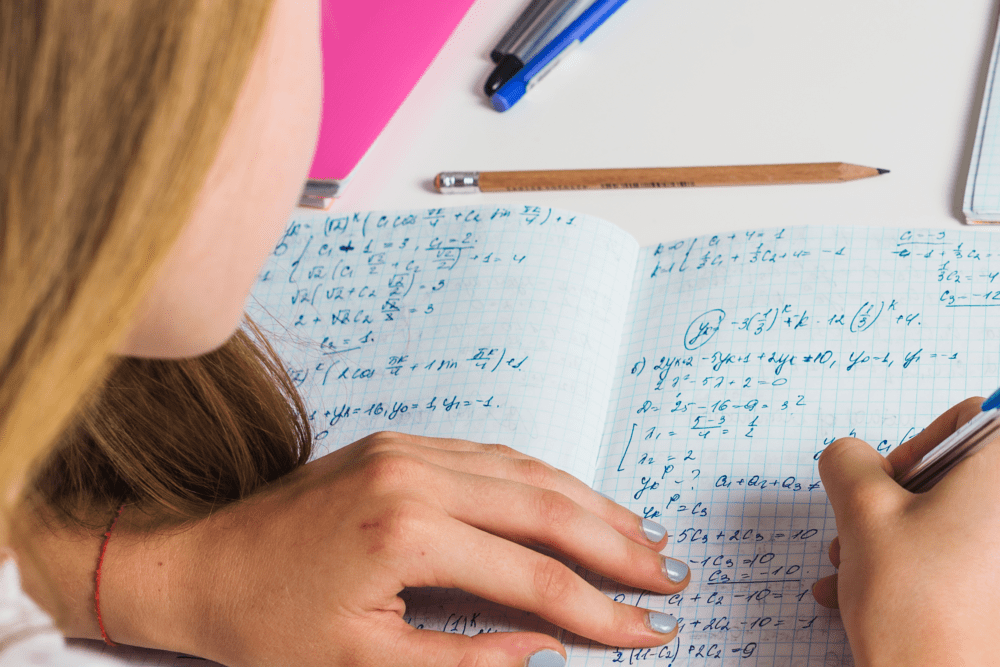 (√2)^k (c₁cos πk/4 + c₂ sin πk/4) + 1
c₁ + 1 = 3, c₁ = 2.
√2(c₁ √2/2 + c₂ √2/2) + 1 = 4
√2(√2 + c₂ √2/2) = 3
2 + √2c₂ √2/2 = 3
c₂ = 1.
(2cos πk/4 + 1 sin πk/4) + 1.
1 + yₖ = 16, y₀ = 1, y₁ = -1.
k=0 { c₁ + 4 = 1
k=1 { 1/3c₁ + 1/3c₂ + 4 = -1
c₁ = -3
-1 + 1/3c₂ =
1/3c₂ = -4
c₂ = -12
yₖ = -3(1/3)^k + k · 12(1/3)^k + 4.
2yₖ₊₂ - 5yₖ₊₁ + 2yₖ = 10, y₀ = 1, y₁ = -1
2λ² - 5λ + 2 = 0
D = 25 - 16 = 9 = 3²
[ λ₁ = 5-3/4 = 1/2
λ₂ = 2
yₖᵖ - ? a₁ + a₂ + a₃ ≠
yₖᵖ = c₃
-5c₃ + 2c₃ = 10
-1c₃ = 10
c₃ = -10.
c₁ + c₂ - 10 = 1
+ 2c₂ - 10 = -1
1/2(11-c₂) + 2c₂ = 9